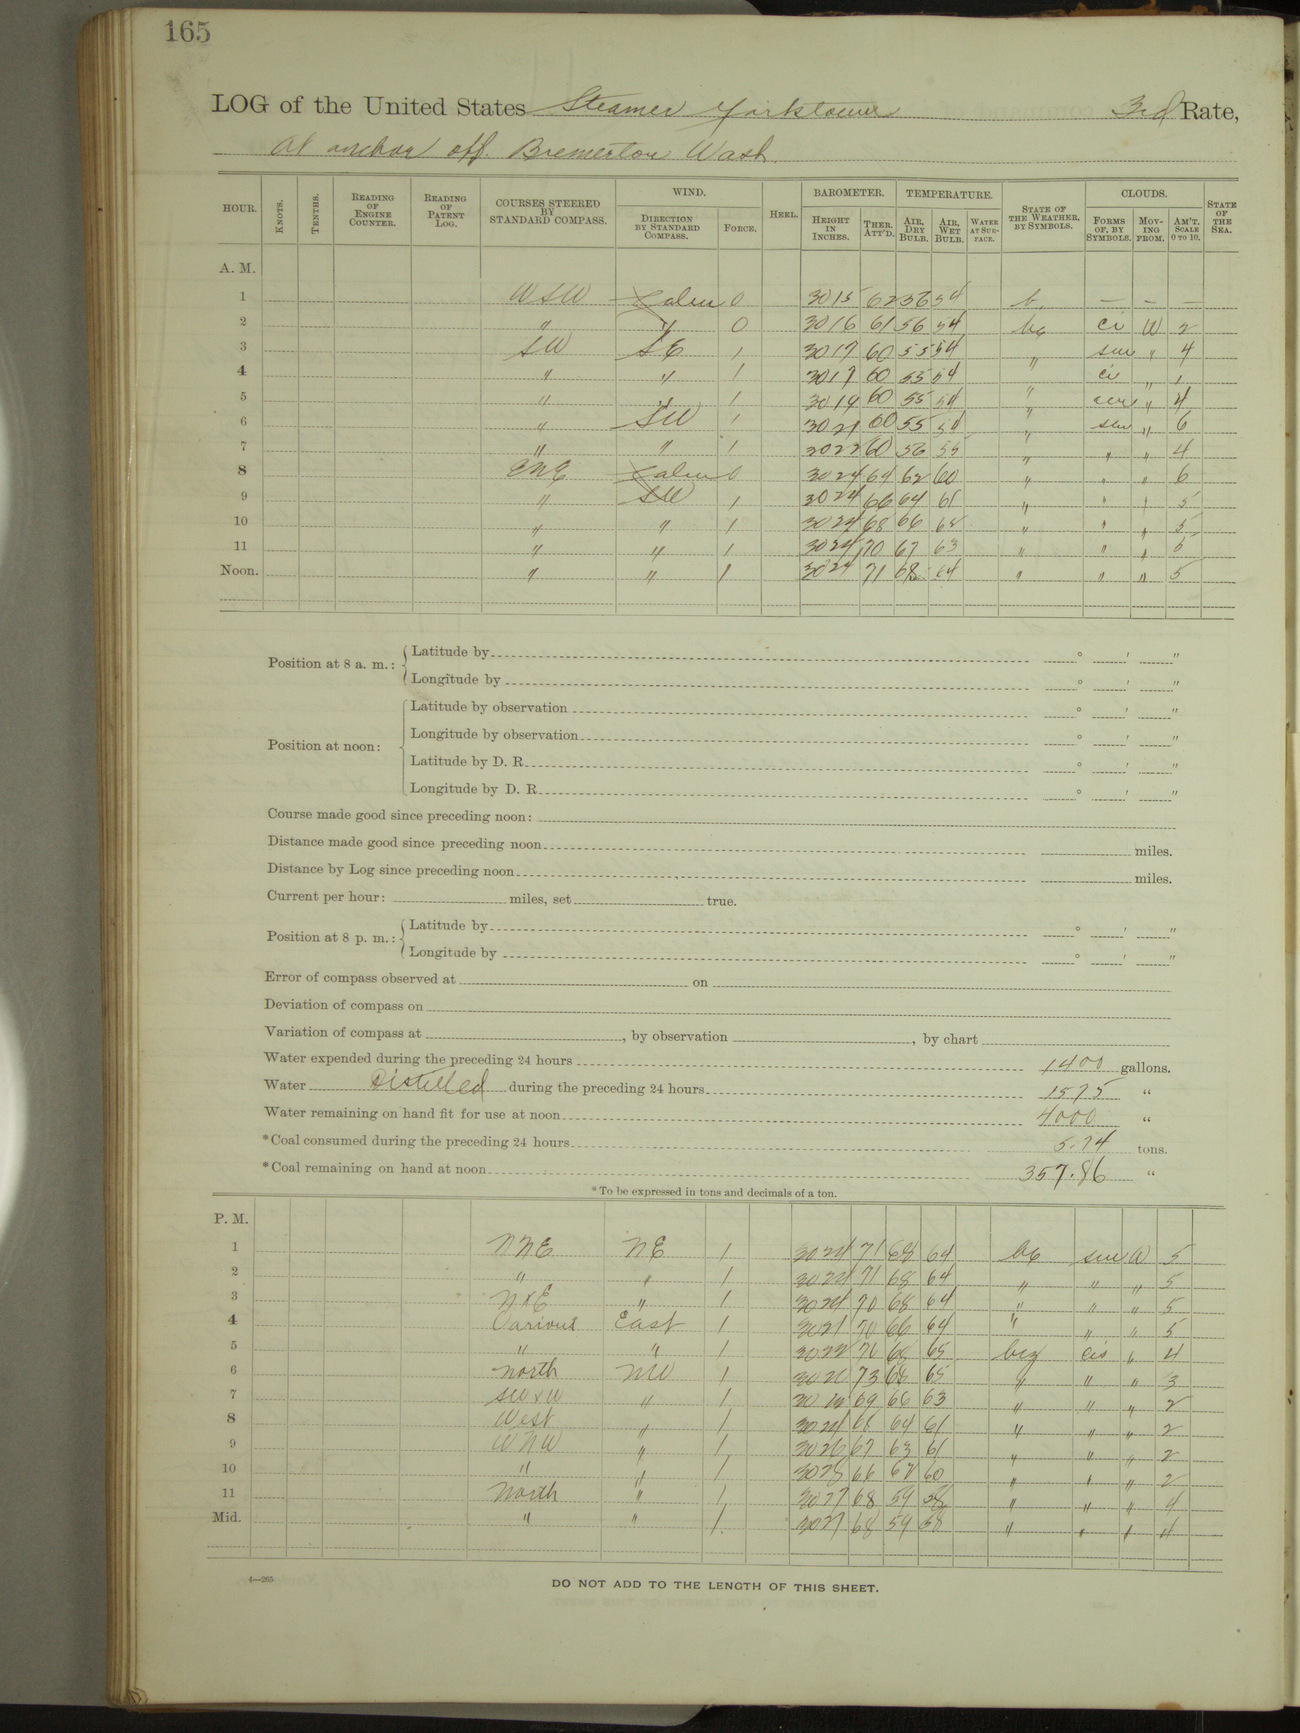 165
LOG of the United States Steamer Yorktown 3rd Rate,
At anchor off Bremerton Wash.
HOUR. KNOTS. TENTHS. READING OF ENGINE COUNTER. READING OF PATENT LOG. COURSES STEERED BY STANDARD COMPASS. WIND. DIRECTION BY STANDARD COMPASS. FORCE. HEEL. BAROMETER. HEIGHT IN INCHES. THER. ATT'D. TEMPERATURE. AIR, DRY BULB. AIR, WET BULB. WATER AT SURFACE. STATE OF THE WEATHER, BY SYMBOLS. CLOUDS. FORMS OF, BY SYMBOLS. MOVING FROM. AM'T. SCALE 0 TO 10. STATE OF THE SEA.
A. M.
1 WSW Calm 0 30 15 62 56 54 b. — — —
2 " " 0 30 16 61 56 54 bc ci W 2
3 SW SE 1 30 17 60 55 54 " " 4
4 " " 1 30 17 60 55 54 " ci " 1
5 " " 1 30 19 60 55 54 " " 4
6 " SW 1 30 21 60 55 54 " " 6
7 " " 1 30 22 60 56 55 " " " 4
8 ENE Calm 0 30 24 64 62 60 " " " 6
9 " SW 1 30 24 66 64 61 " " " 5
10 " " 1 30 24 68 66 " " " 5
11 " " 1 30 24 70 67 63 " " "
Noon. " " 1 30 24 71 68 64 " " " 5
Position at 8 a. m.: Latitude by ° ' "
Longitude by ° ' "
Position at noon: Latitude by observation ° ' "
Longitude by observation ° ' "
Latitude by D. R. ° ' "
Longitude by D. R. ° ' "
Course made good since preceding noon:
Distance made good since preceding noon miles.
Distance by Log since preceding noon miles.
Current per hour: miles, set true.
Position at 8 p. m.: Latitude by ° ' "
Longitude by ° ' "
Error of compass observed at on
Deviation of compass on
Variation of compass at , by observation , by chart
Water expended during the preceding 24 hours 1400 gallons.
Water Distilled during the preceding 24 hours 1575 "
Water remaining on hand fit for use at noon 4000 "
*Coal consumed during the preceding 24 hours 5.74 tons.
*Coal remaining on hand at noon 357.86 "
*To be expressed in tons and decimals of a ton.
P. M.
1 NNE NE 1 30 24 71 68 64 bc W 5
2 " " 1 30 24 71 68 64 " " " 5
3 NxE " 1 30 24 70 68 64 " " " 5
4 Various East 1 30 21 70 66 64 " " " 5
5 " " 1 30 22 68 65 bcz cis " 4
6 North NW 1 30 20 73 68 65 " " " 3
7 SWxW " 1 30 69 66 63 " " " 2
8 West " 1 30 24 64 61 " " " 2
9 WNW " 1 30 26 67 63 61 " " " 2
10 " " 1 30 28 66 62 60 " " " 2
11 North " 1 30 27 68 59 58 " " " 4
Mid. " " 1 30 27 68 59 58 " " " 4
4—265
DO NOT ADD TO THE LENGTH OF THIS SHEET.